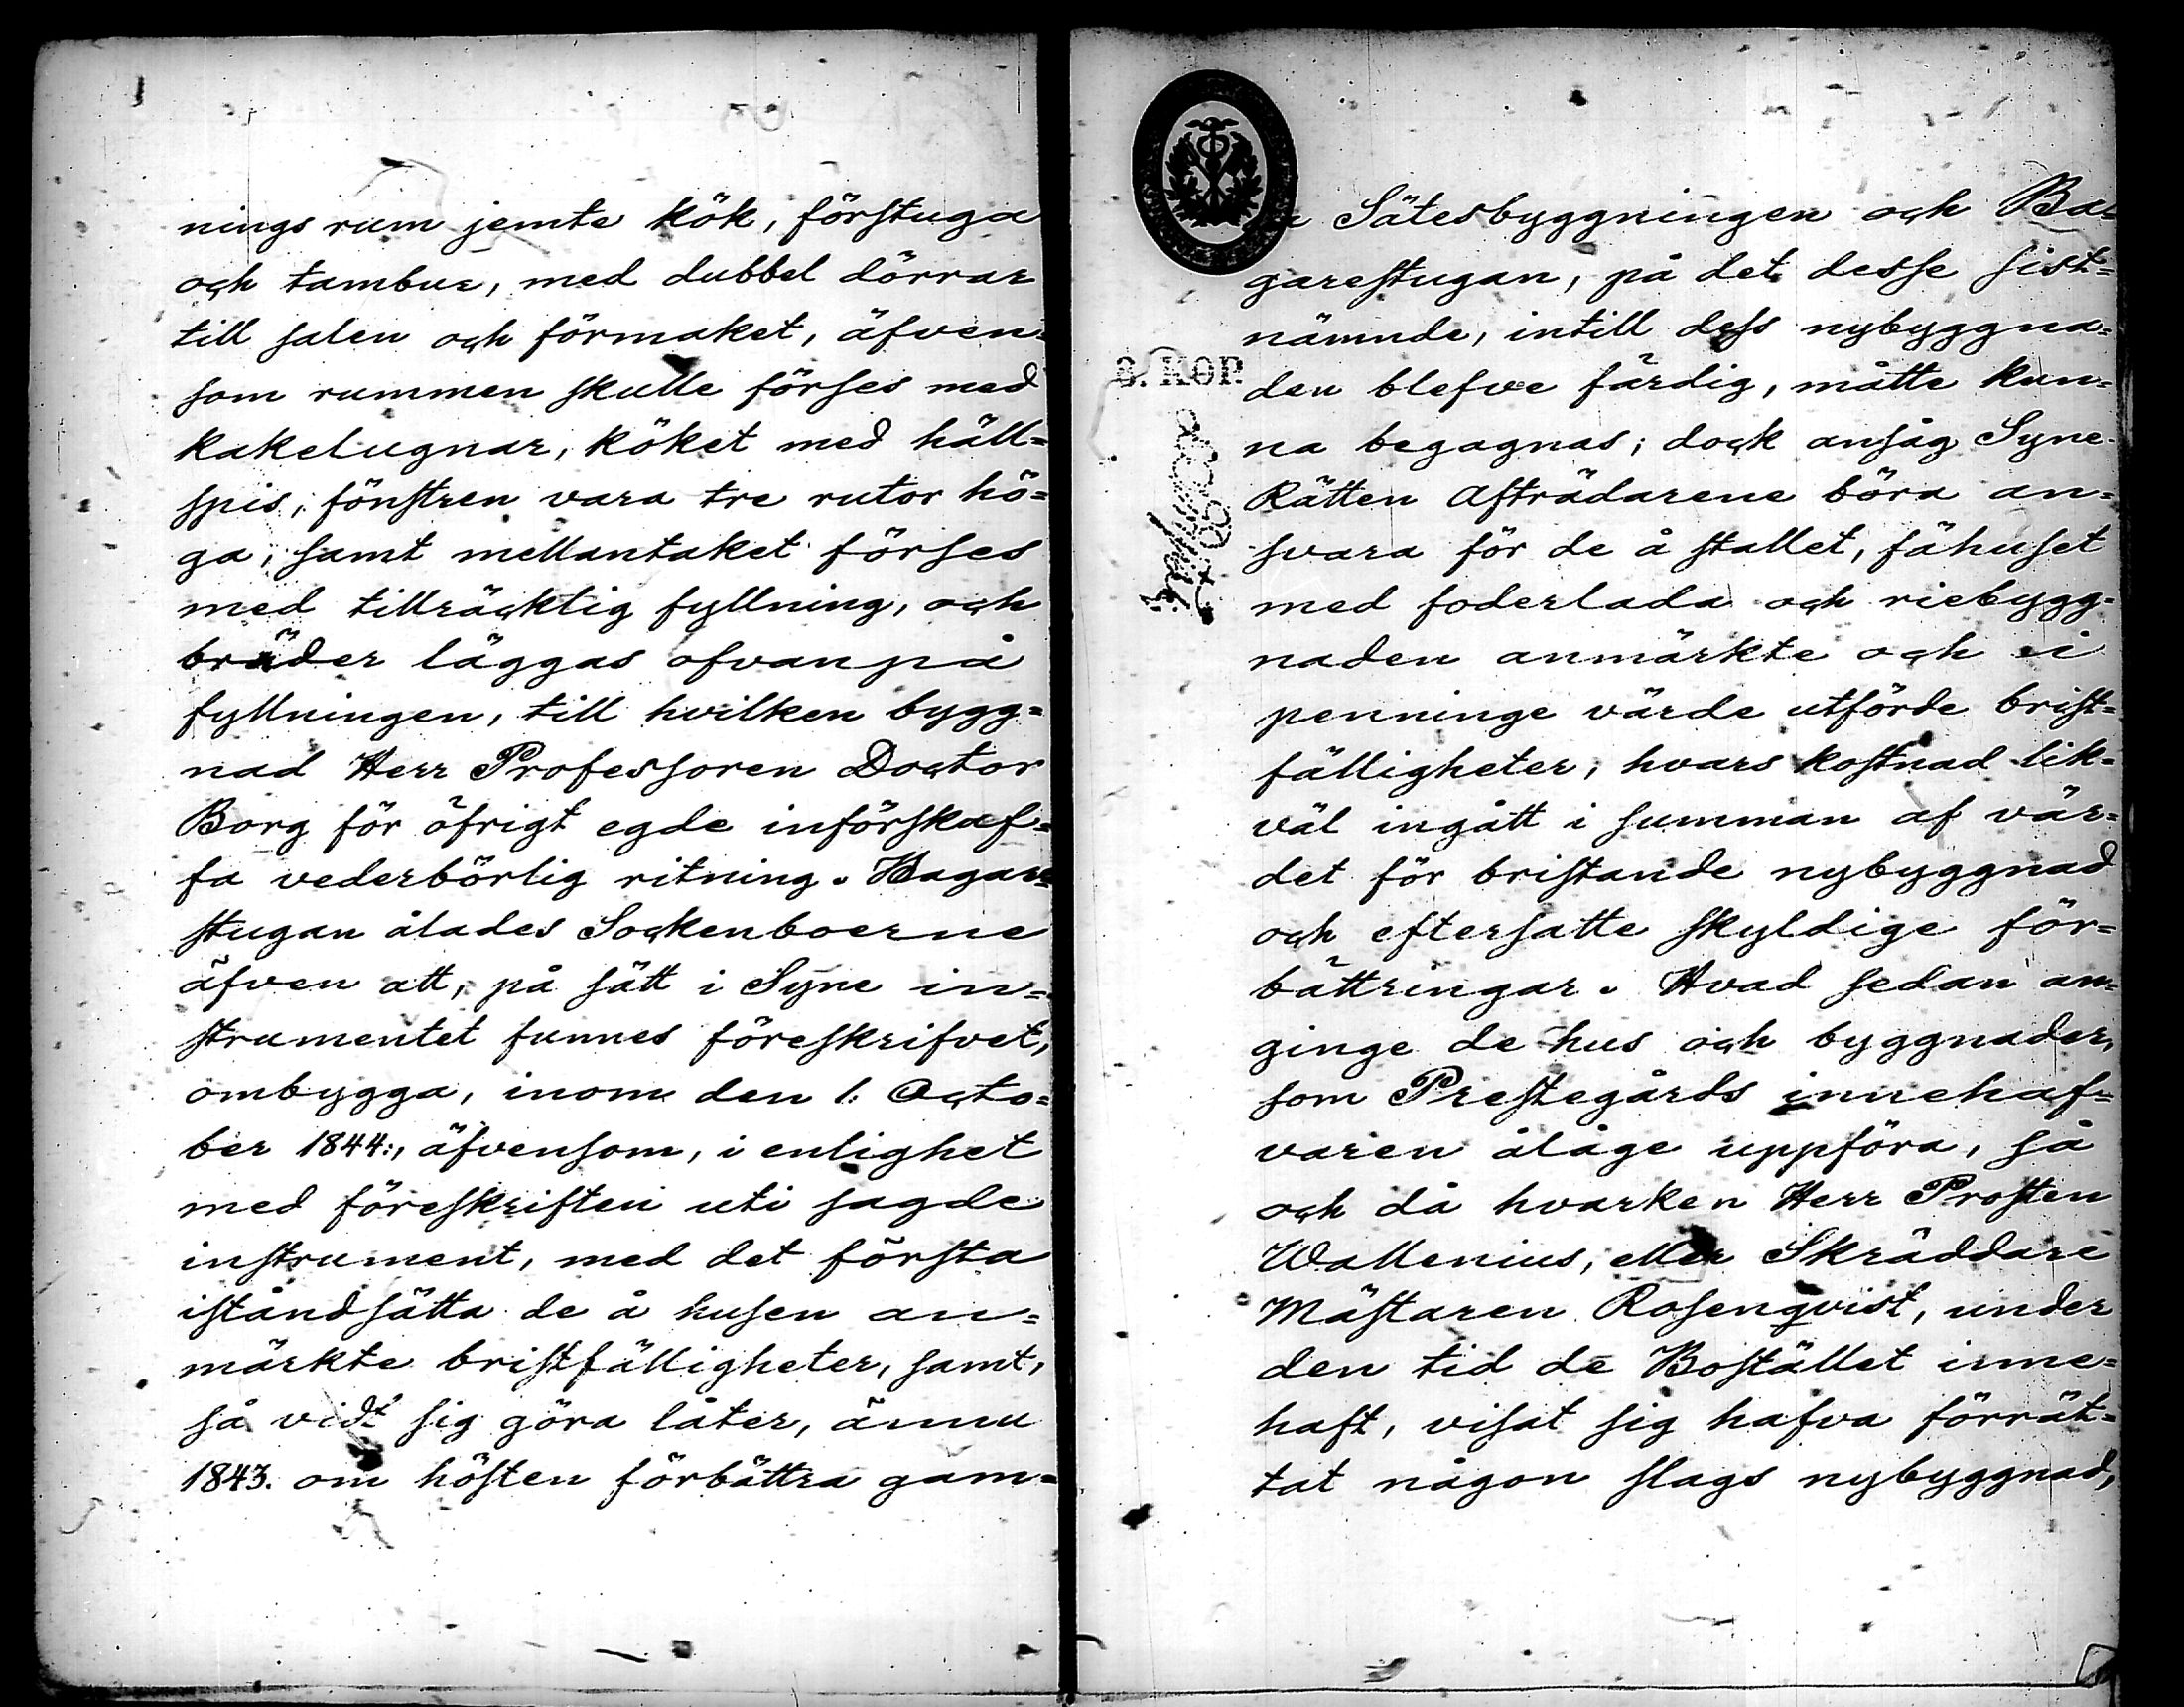 nings rum jemte kök, förstuga
och tambur, med dubbel dörrar
till salen och förmaket, äfven=
som rummen skulle förses med
kakelugnar, köket med häll=
spis, fönstren vara tre rutor hö=
ga, samt mellantaket förses
med tillräcktig fyllning, och
bräder läggas ofvanpå
fyllningen, till hvilken bygg=
nad Herr Professoren Doctor
Borg för öfrigt egde införskaf=
fa vederbörlig ritning. Bagare
stugan ålades Sockenboerne
äfven att, på sätt i Syne in=
strumentet funnes föreskrifvet,
ombygga, inom den 1. Octo=
ber 1844:, äfvensom, i enlighet
med föreskriften uti sagde
instrument, med det första
iståndsätta de å husen an=
märkte bristfälligheter, samt,
så vidt sig göra låter, ännu
1843. om hösten förbättra gam=
Sätesbyggningen och Ba=
garestugan, på det desse sist=
nämnde, intill dess nybyggna=
3. KOP.
den blefve färdig, måtte kun=
na begagnas; dock ansåg Syne
Rätten Afträdarene böra an=
svara för de å stallet, fähuset
med foderlada och riebygg=
naden anmärkte och i
penninge värde utförde brist=
fälligheter, hvars kostnad lik=
väl ingått i summan af vär=
det för bristande nybyggnad
och eftersatte skyldige för=
bättringar. Hvad sedan an=
ginge de hus och byggnader,
som Prestegårds innehaf=
varen ålåge uppföra, så
och då hvarken Herr Prosten
Wallenius, eller Skräddare
Mästaren Rosenqvist, under
den tid de Bostället inne=
haft, visat sig hafva förrät=
tat någon slags nybyggnad,